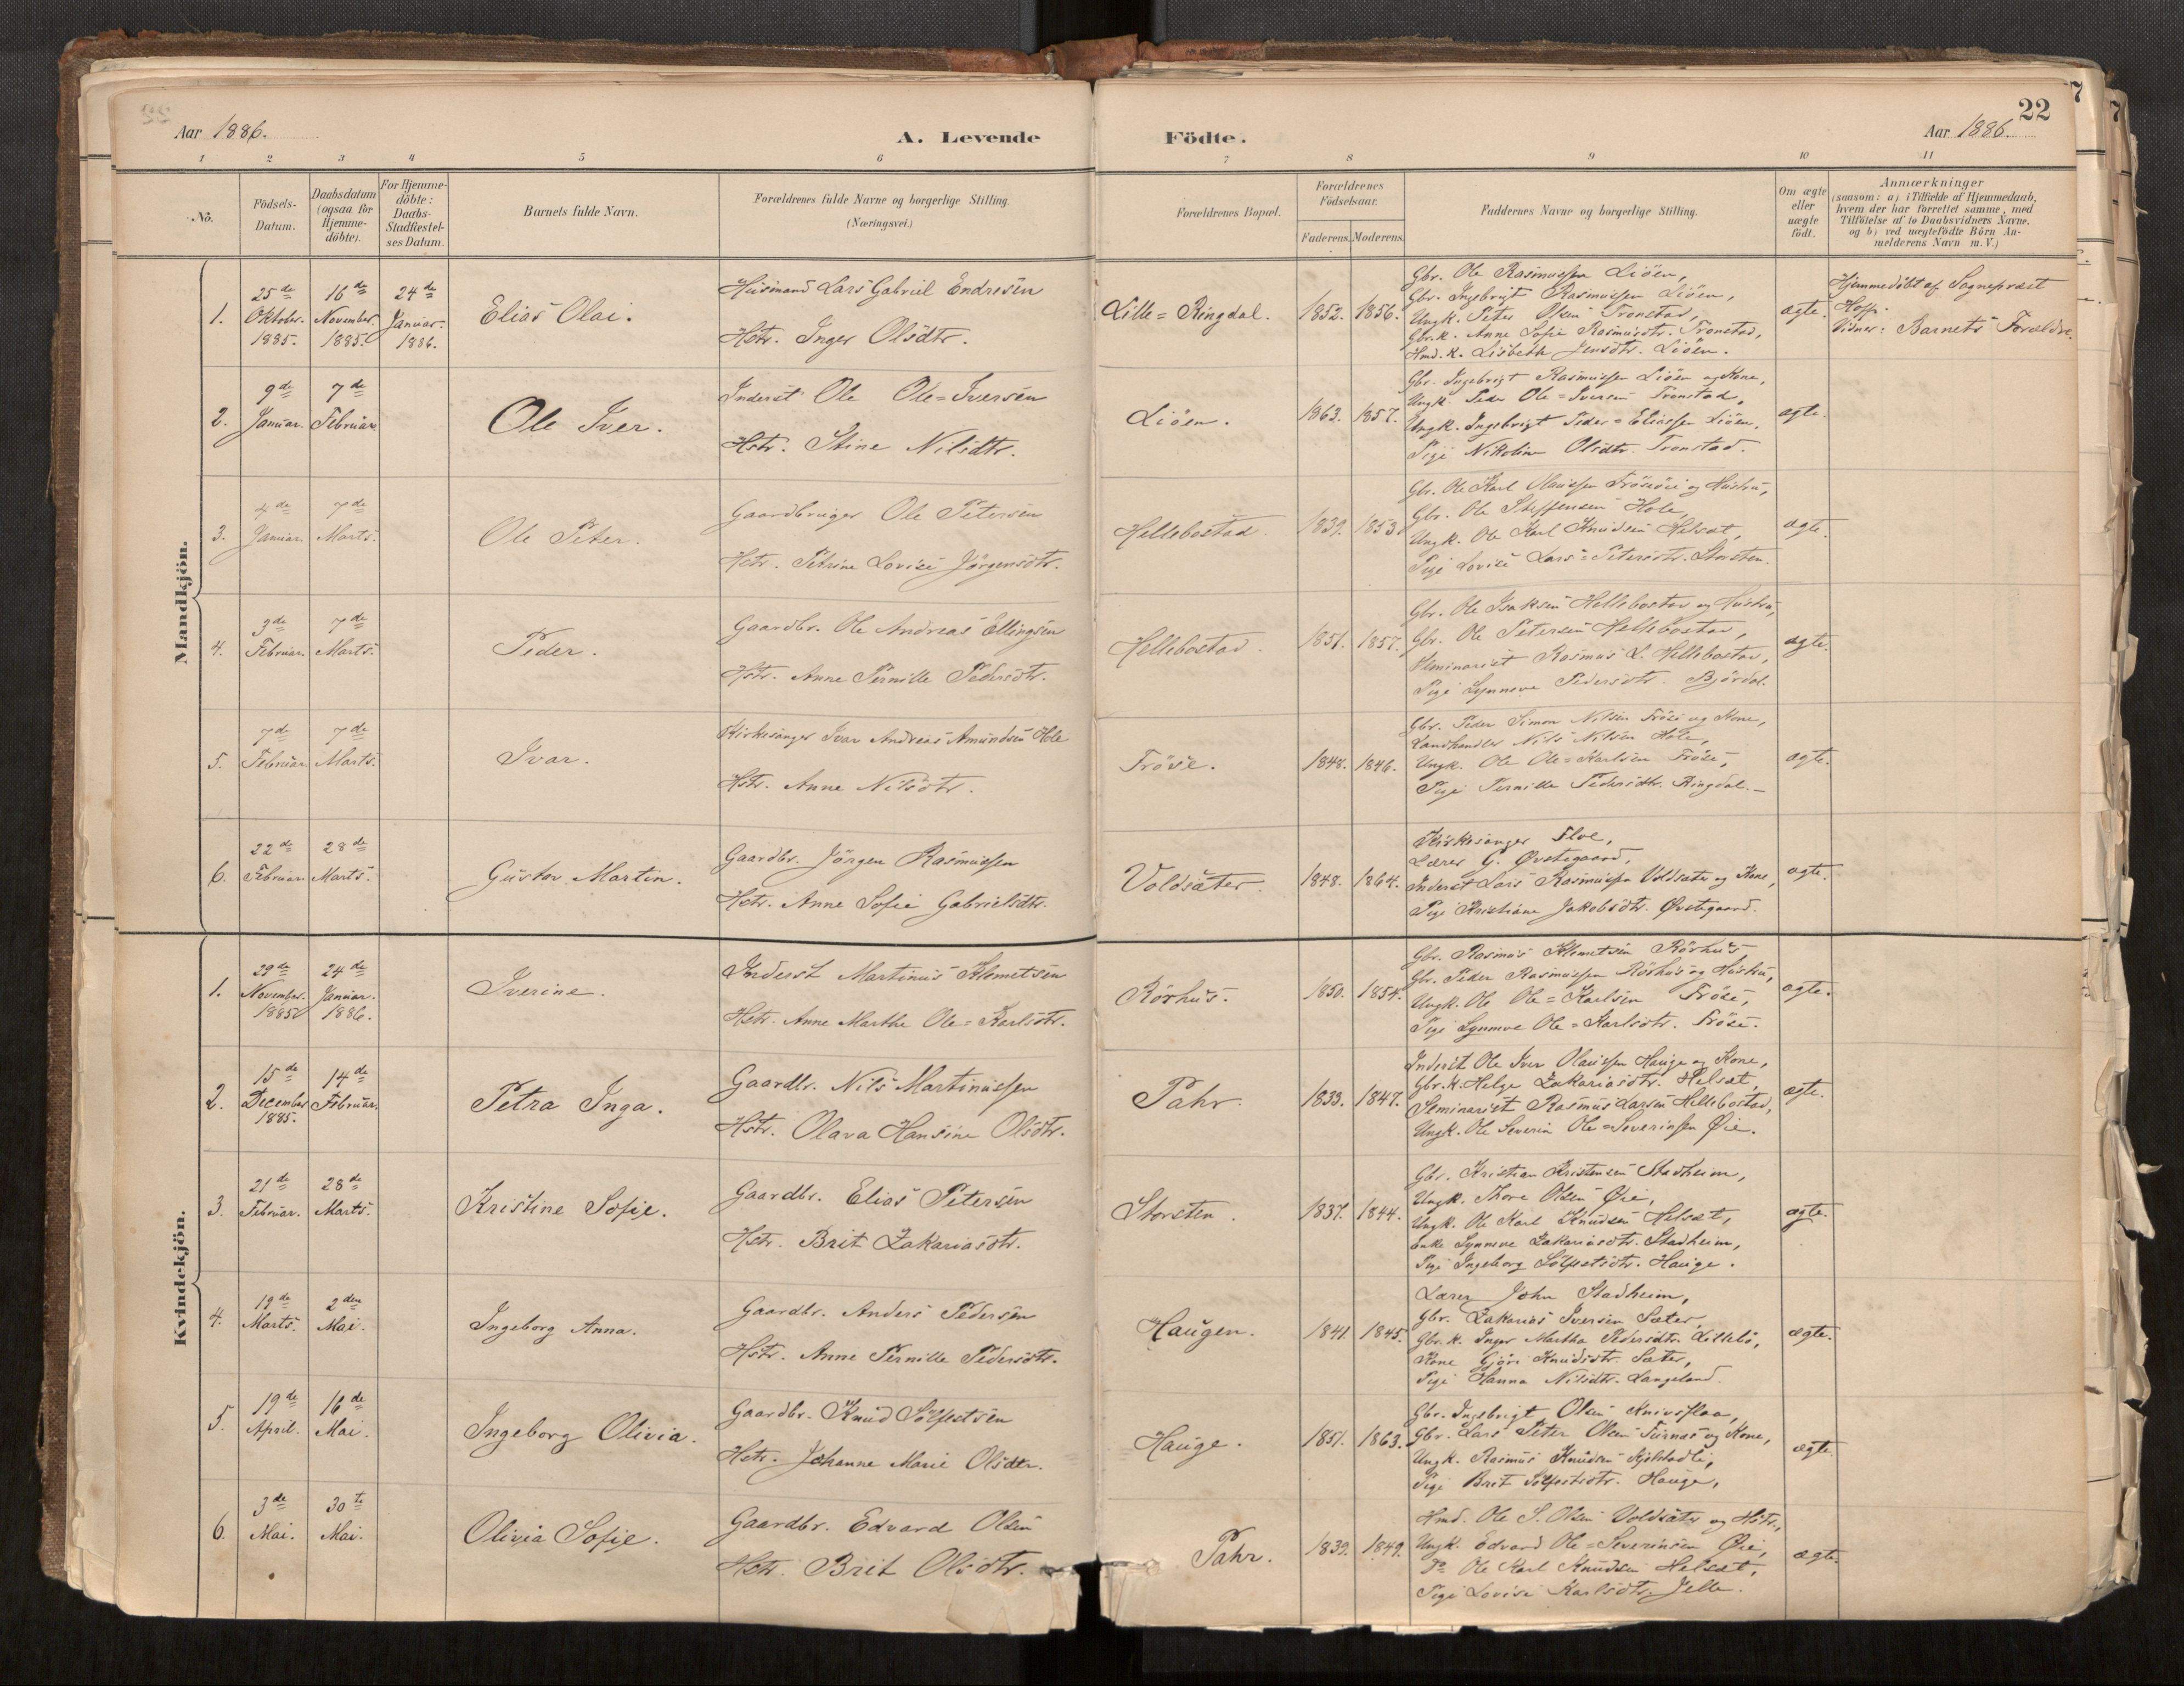 22
Aar 1886.
A. Levende Födte.
Aar 1886.
1 2 3 4 5 6 7 8 9 10 11
No.
Födsels-
Datum.
Daabsdatum
(ogsaa for
Hjemme-
döbte).
For Hjemme-
döbte:
Daabs-
Stadfæstel-
ses Datum.
Barnets fulde Navn.
Forældrenes fulde Navne og borgerlige Stilling.
(Næringsvei.)
Forældrenes Bopæl.
Forældrenes
Födselsaar.
Faderens. Moderens.
Faddernes Navne og borgerlige Stilling.
Om ægte
eller
uægte
födt.
Anmærkninger
(saasom: a) i Tilfælde af Hjemmedaab,
hvem der har forrettet samme, med
Tilföielse af to Daabsvidners Navne,
og b) ved uægtefödte Börn An-
melderens Navn m.V.)
Mandkjön.
1.
25de
Oktober.
1885.
16de
November.
1885.
24de
Januar.
1886.
Elias Olai.
Husmand Lars Gabriel Endresen
Hstr. Inger Olsdtr.
Lille=Ringdal.
1852. 1856.
Gbr. Ole Rasmussen Liöen,
Gbr. Ingebrigt Rasmussen Liöen,
Ungk. Peter Olsen Tronstad,
Gbr.k. Anne Sofie Rasmusdtr. Tronstad,
Hmd.k. Lisbeth Jensdtr. Liöen.
ægte.
Hjemmedöbt af Sognepræst
Hoff.
Vidner: Barnets Forældre.
2.
9de
Januar.
7de
Februar.
Ole Iver.
Inderst Ole Ole=Iversen
Hstr. Stine Nilsdtr.
Liöen.
1863. 1857.
Gbr. Ingebrigt Rasmussen Liöen og Kone,
Ungk. Peder Ole=Iversen Tronstad,
Ungk. Ingebrigt Peder=Eliassen Liöen,
Pige Nikoline Olsdtr. Tronstad.
ægte.
3.
4de
Januar.
7de
Marts.
Ole Peter.
Gaardbruger Ole Petersen
Hstr. Petrine Lovise Jörgensdtr.
Hellebostad.
1839. 1853.
Gbr. Ole Karl Olaussen Fröseöie og Hustru,
Gbr. Ole Steffensen Hole,
Ungk. Ole Karl Knudsen Helsæt,
Pige Lovise Lars=Petersdtr. Storsten.
ægte.
4.
3de
Februar.
7de
Marts.
Peder.
Gaardbr. Ole Andreas Ellingsen
Hstr. Anne Pernille Pedersdtr.
Hellebostad.
1851. 1857.
Gbr. Ole Isaksen Hellebostad og Hustru,
Gbr. Ole Petersen Hellebostad,
Seminarist Rasmus L. Hellebostad,
Pige Synneve Pedersdtr. Björdal.
ægte.
5.
7de
Februar.
7de
Marts.
Ivar.
Kirkesanger Ivar Andreas Amundsen Hole
Hstr. Anne Nilsdtr.
Fröse.
1848. 1846.
Gbr. Peder Simon Nilsen Fröse og Kone,
Landhandler Nils Nilsen Hole,
Ungk. Ole Ole=Karlsen Fröse,
Pige Pernille Pedersdtr. Ringdal.
ægte.
6.
22de
Februar.
28de
Marts.
Gustav Martin.
Gaardbr. Jörgen Rasmussen
Hstr. Anne Sofie Gabrielsdtr.
Voldsäter.
1848. 1864.
Kirkesanger Floe,
Lærer G. Øvstegaard,
Inderst Lars Rasmussen Voldsæter og Kone,
Pige Kristiane Jakobsdtr. Øvstegaard.
ægte.
Kvindekjön.
1.
29de
November.
1885.
24de
Januar.
1886.
Iverine.
Inderst Martinus Klemetsen
Hstr. Anne Marthe Ole=Karlsdtr.
Rörhus.
1850. 1854.
Gbr. Rasmus Klemetsen Rörhus
Gbr. Peder Rasmussen Rörhus og Hustru,
Ungk. Ole Ole=Karlsen Fröse,
Pige Synneve Ole=Karlsdtr. Fröse.
ægte.
2.
15de
December
1885.
14de
Februar.
Petra Inga.
Gaardbr. Nils Martinussen
Hstr. Olava Hansine Olsdtr.
Pahr.
1833. 1847.
Inderst Ole Iver Olaussen Hauge og Kone,
Gbr.k. Helge Zakariasdtr. Helsæt,
Seminarist Rasmus Larsen Hellebostad,
Ungk. Ole Severin Ole=Severinsen Øie.
ægte.
3.
21de
Februar.
28de
Marts.
Kristine Sofie.
Gaardbr. Elias Petersen
Hstr. Brit Zakariasdtr.
Storsten.
1837. 1844.
Gbr. Kristian Kristensen Stadheim,
Ungk. Thore Olsen Øie,
Ungk. Ole Karl Knudsen Helsæt,
Enke Synneve Zakariasdtr. Stadheim,
Pige Ingeborg Sölfestsdtr. Hauge.
ægte.
4.
19de
Marts.
2den
Mai.
Ingeborg Anna.
Gaardbr. Anders Pedersen
Hstr. Anne Pernille Pedersdtr.
Haugen.
1841. 1845.
Lærer John Stadheim,
Gbr. Zakarias Iversen Sæter,
Gbr.k. Inger Martha Pedersdtr. Lillebö,
Kone Gjöri Knudsdtr. Sæter,
Pige Hanna Nilsdtr. Langeland.
ægte.
5.
19de
April.
16de
Mai.
Ingeborg Olivia.
Gaardbr. Knud Sölfestsen
Hstr. Johanne Marie Olsdtr.
Hauge.
1851. 1863.
Gbr. Ingebrigt Olsen Knivsflaa,
Gbr. Lars Peter Olsen Furnæs og Kone,
Ungk. Rasmus Knudsen Kjelstadli,
Pige Brit Sölfestsdtr. Hauge,
ægte.
6.
3de
Mai.
30te
Mai.
Olivia Sofie.
Gaardbr. Edvard Olsen
Hstr. Brit Olsdtr.
Pahr.
1839. 1849.
Hmd. Ole S. Olsen Voldsæter og Hstr.,
Ungk. Edvard Ole=Severinsen Øie,
Do Ole Karl Knudsen Helsæt,
Pige Lovise Karlsdtr. Jelle.
ægte.